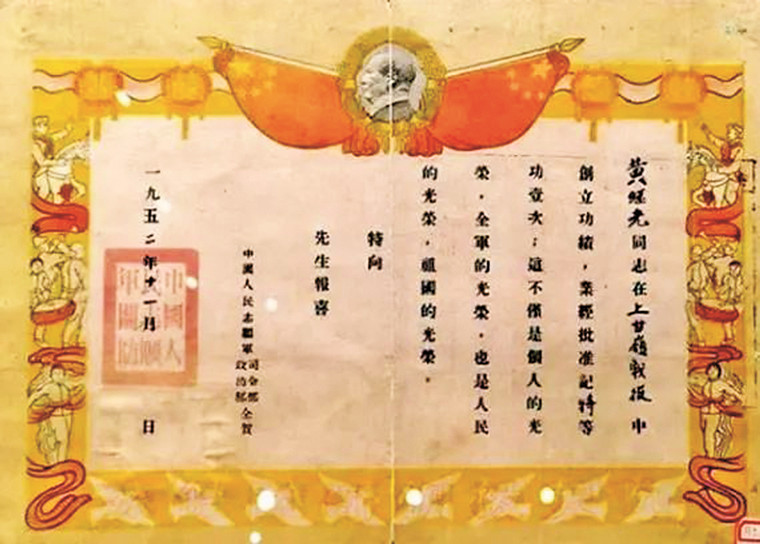 黃継光同志在上甘嶺戰役中
創立功績，業經批准記特等
功壹次；這不僅是個人的光
榮，全軍的光榮，也是人民
的光榮，祖國的光榮。
特向
先生報喜
中國人民志願軍司令部
政治部仝賀
一九五二年十一月 日
中國人
民志願
軍關防